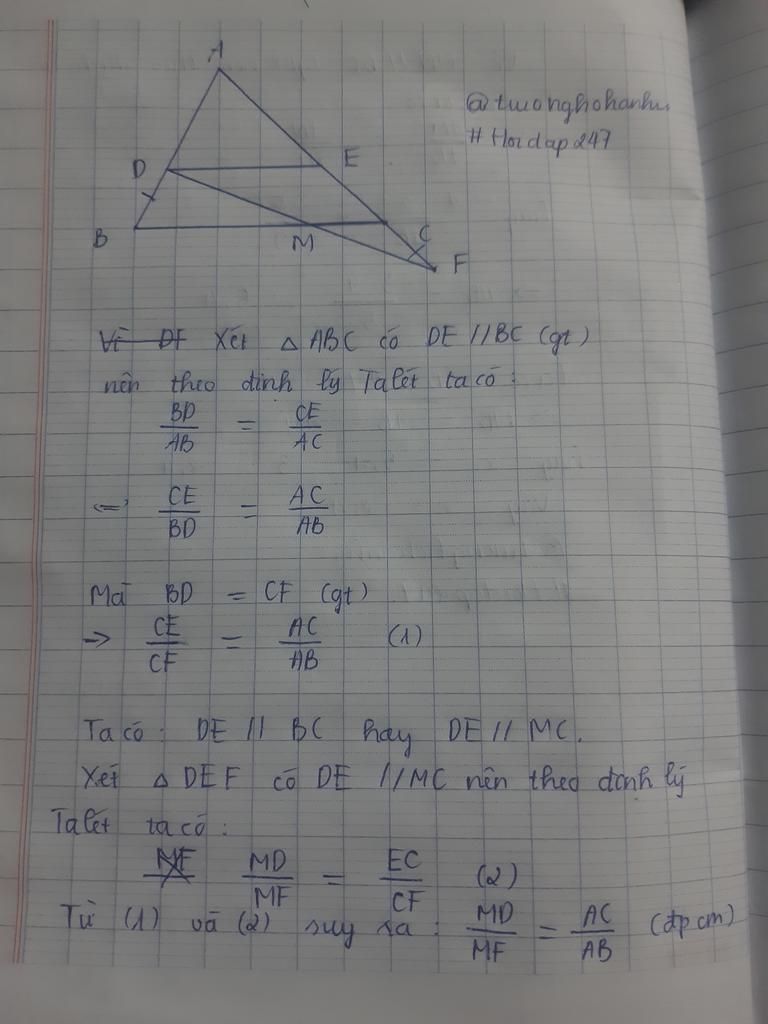 A
@tuonghohanhu
# Hoidap247
D
E
B
M
C
F
Vẽ DF Xét △ ABC có DE // BC (gt)
nên theo định lý Talét ta có :
BD/AB = CE/AC
<=> CE/BD = AC/AB
Mà BD = CF (gt)
=> CE/CF = AC/AB (1)
Ta có : DE // BC hay DE // MC.
Xét △ DEF có DE // MC nên theo định lý
Talét ta có :
MF MD/MF = EC/CF (2)
Từ (1) và (2) suy ra : MD/MF = AC/AB (đpcm)